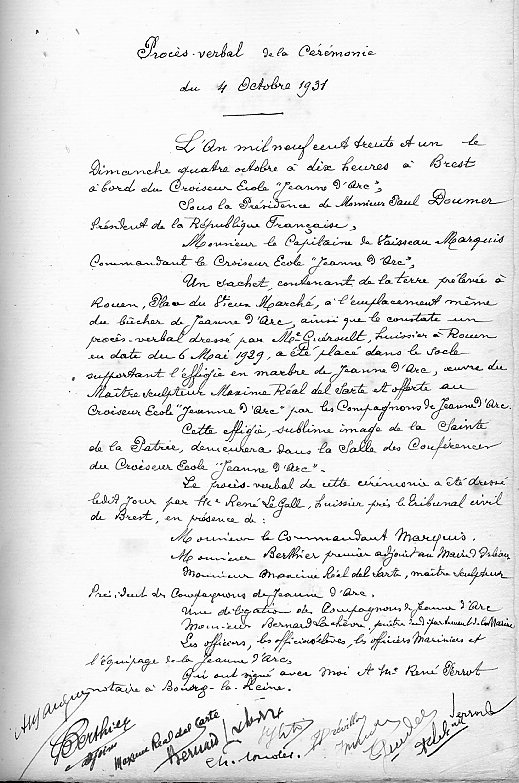 Procès-verbal de la Cérémonie
du 4 Octobre 1931
L'An mil neuf cent trente et un le
Dimanche quatre octobre à dix heures à Brest
à bord du Croiseur Ecole "Jeanne d'Arc",
Sous la Présidence de Monsieur Paul Doumer
Président de la République Française,
Monsieur le Capitaine de Vaisseau Marquis
Commandant le Croiseur Ecole "Jeanne d'Arc",
Un sachet, contenant de la terre prélevée à
Rouen, Place du Vieux Marché, à l'emplacement même
du bûcher de Jeanne d'Arc, ainsi que le constate un
procès-verbal dressé par Me Guéroult, huissier à Rouen
en date du 6 Mai 1929, a été placé dans le socle
supportant l'effigie en marbre de Jeanne d'Arc, œuvre du
Maître sculpteur Maxime Réal del Sarte et offerte au
Croiseur Ecole "Jeanne d'Arc" par les Compagnons de Jeanne d'Arc.
Cette effigie, sublime image de la Sainte
de la Patrie, demeurera dans la Salle des Conférences
du Croiseur Ecole "Jeanne d'Arc".
Le procès-verbal de cette cérémonie a été dressé
ledit Jour par Me René Le Gall, huissier près le tribunal civil
de Brest, en présence de :
Monsieur le Commandant Marquis.
Monsieur Berthier premier adjoint au Maire d'Orléans
Monsieur Maxime Réal del Sarte, maître sculpteur
Président des Compagnons de Jeanne d'Arc.
Une délégation des Compagnons de Jeanne d'Arc
Monsieur Bernard Lachèvre, peintre du département de la Marine
Les officiers, les officiers élèves, les officiers Mariniers et
l'équipage de la Jeanne d'Arc.
Qui ont signé avec moi et Me René Perrot
notaire à Bourg-la-Reine.
Berthier
Maxime Real del Sarte
Bernard Lachèvre